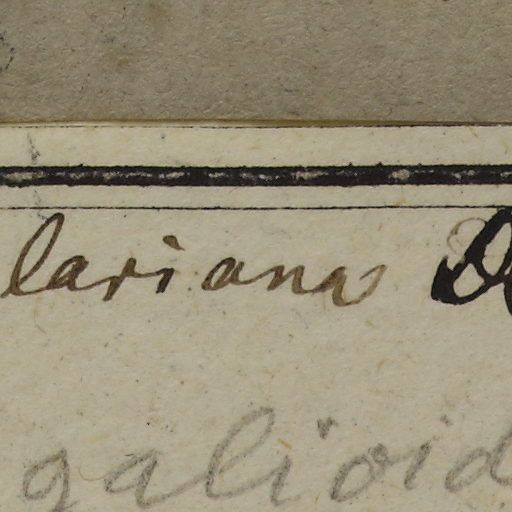 lariana D
galioid